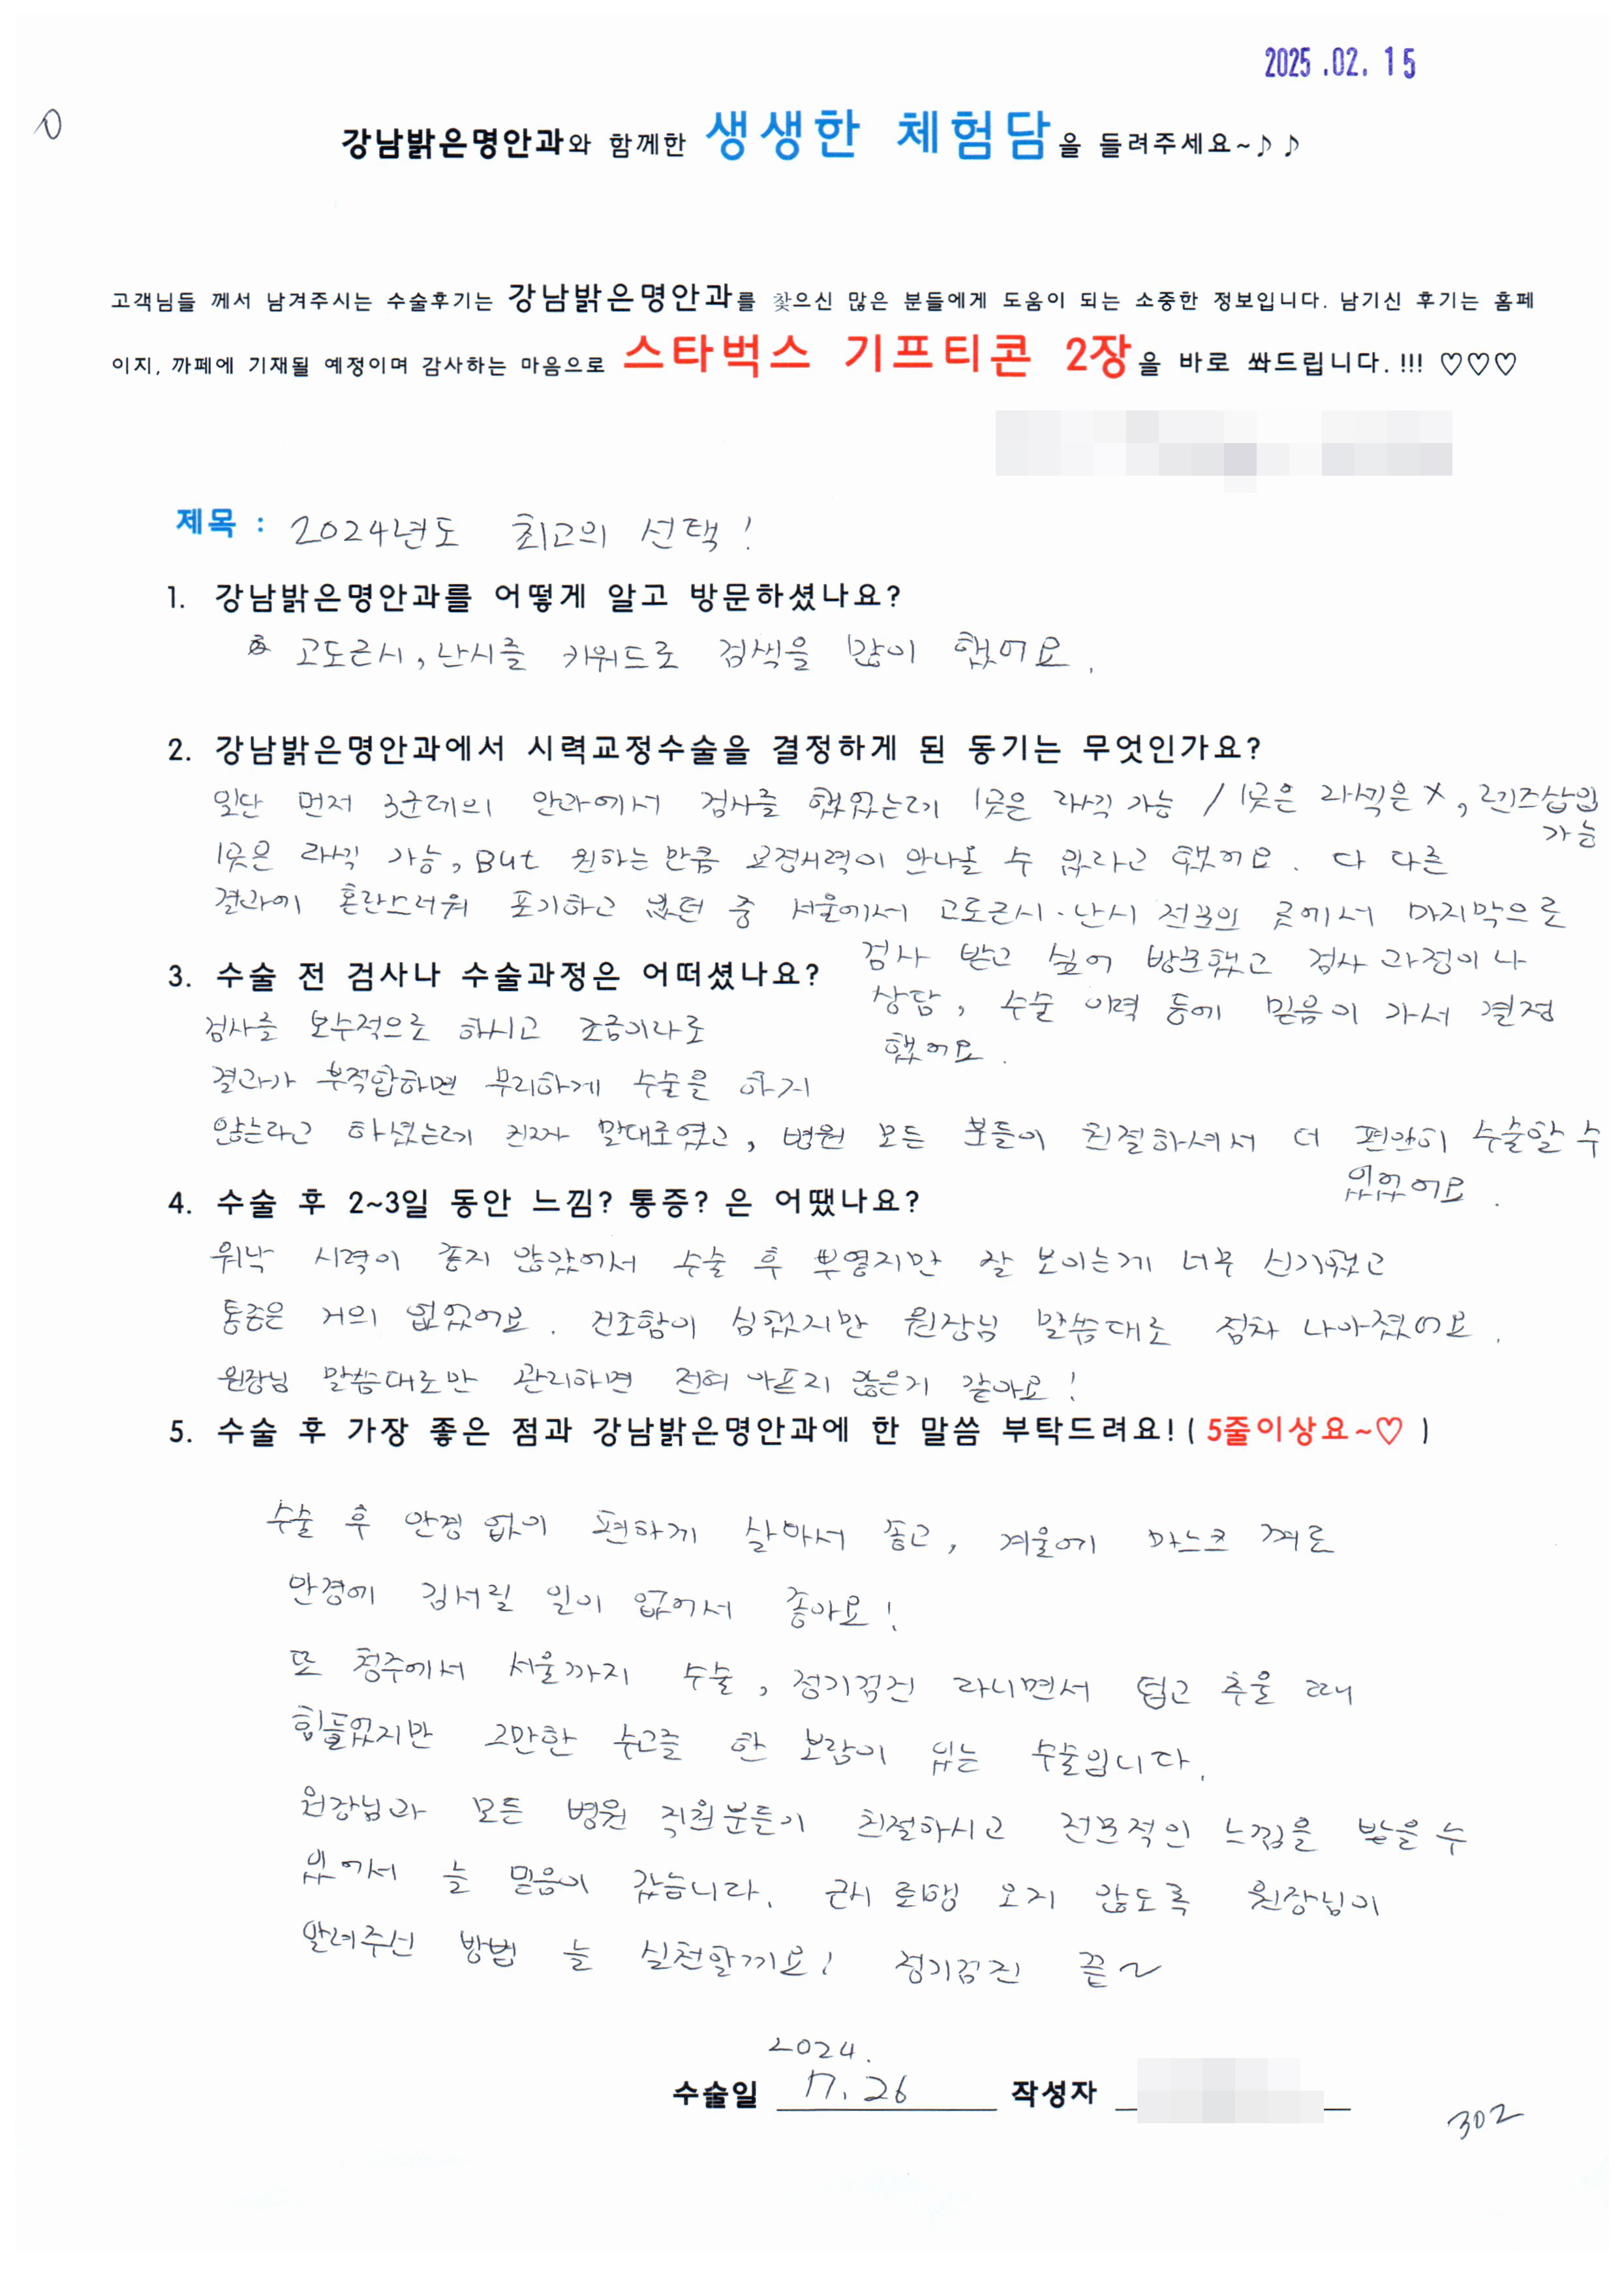 2025.02.15
강남밝은명안과와 함께한 생생한 체험담을 들려주세요~♪♪
고객님들 께서 남겨주시는 수술후기는 강남밝은명안과를 찾으신 많은 분들에게 도움이 되는 소중한 정보입니다. 남기신 후기는 홈페
이지, 까페에 기재될 예정이며 감사하는 마음으로 스타벅스 기프티콘 2장을 바로 쏴드립니다.!!! ♡♡♡
제목 : 2024년도 최고의 선택!
1. 강남밝은명안과를 어떻게 알고 방문하셨나요?
고도근시, 난시를 키워드로 검색을 많이 했어요.
2. 강남밝은명안과에서 시력교정수술을 결정하게 된 동기는 무엇인가요?
일단 먼저 3군데의 안과에서 검사를 했었는데 1곳은 라식 가능 / 1곳은 라식은 X, 렌즈삽입
가능
1곳은 라식 가능, But 원하는 만큼 교정시력이 안나올 수 있다고 했어요. 다 다른
결과에 혼란스러워 포기하고 있던 중 서울에서 고도근시·난시 전문인 곳에서 마지막으로
검사 받고 싶어 방문했고 검사 과정이나
상담, 수술 이력 등에 믿음이 가서 결정
했어요.
3. 수술 전 검사나 수술과정은 어떠셨나요?
검사를 보수적으로 하시고 조금이라도
결과가 부적합하면 무리하게 수술을 하지
않는다고 하셨는데 진짜 말대로였고, 병원 모든 분들이 친절하셔서 더 편안히 수술할 수
있었어요.
4. 수술 후 2~3일 동안 느낌? 통증? 은 어땠나요?
워낙 시력이 좋지 않았어서 수술 후 뿌옇지만 잘 보이는게 너무 신기했고
통증은 거의 없었어요. 건조함이 심했지만 원장님 말씀대로 점차 나아졌어요.
원장님 말씀대로만 관리하면 전혀 아프지 않은거 같아요!
5. 수술 후 가장 좋은 점과 강남밝은명안과에 한 말씀 부탁드려요!( 5줄이상요~♡ )
수술 후 안경 없이 편하게 살아서 좋고, 겨울에 마스크 껴도
안경에 김서릴 일이 없어서 좋아요!
또 청주에서 서울까지 수술, 정기검진 다니면서 덥고 추울 때
힘들었지만 그만한 수고를 한 보람이 있는 수술입니다.
원장님과 모든 병원 직원분들이 친절하시고 전문적인 느낌을 받을 수
있어서 늘 믿음이 갔습니다. 근시 퇴행 오지 않도록 원장님이
알려주신 방법 늘 실천할게요! 정기검진 끝~
2024.
수술일 7.26 작성자
302